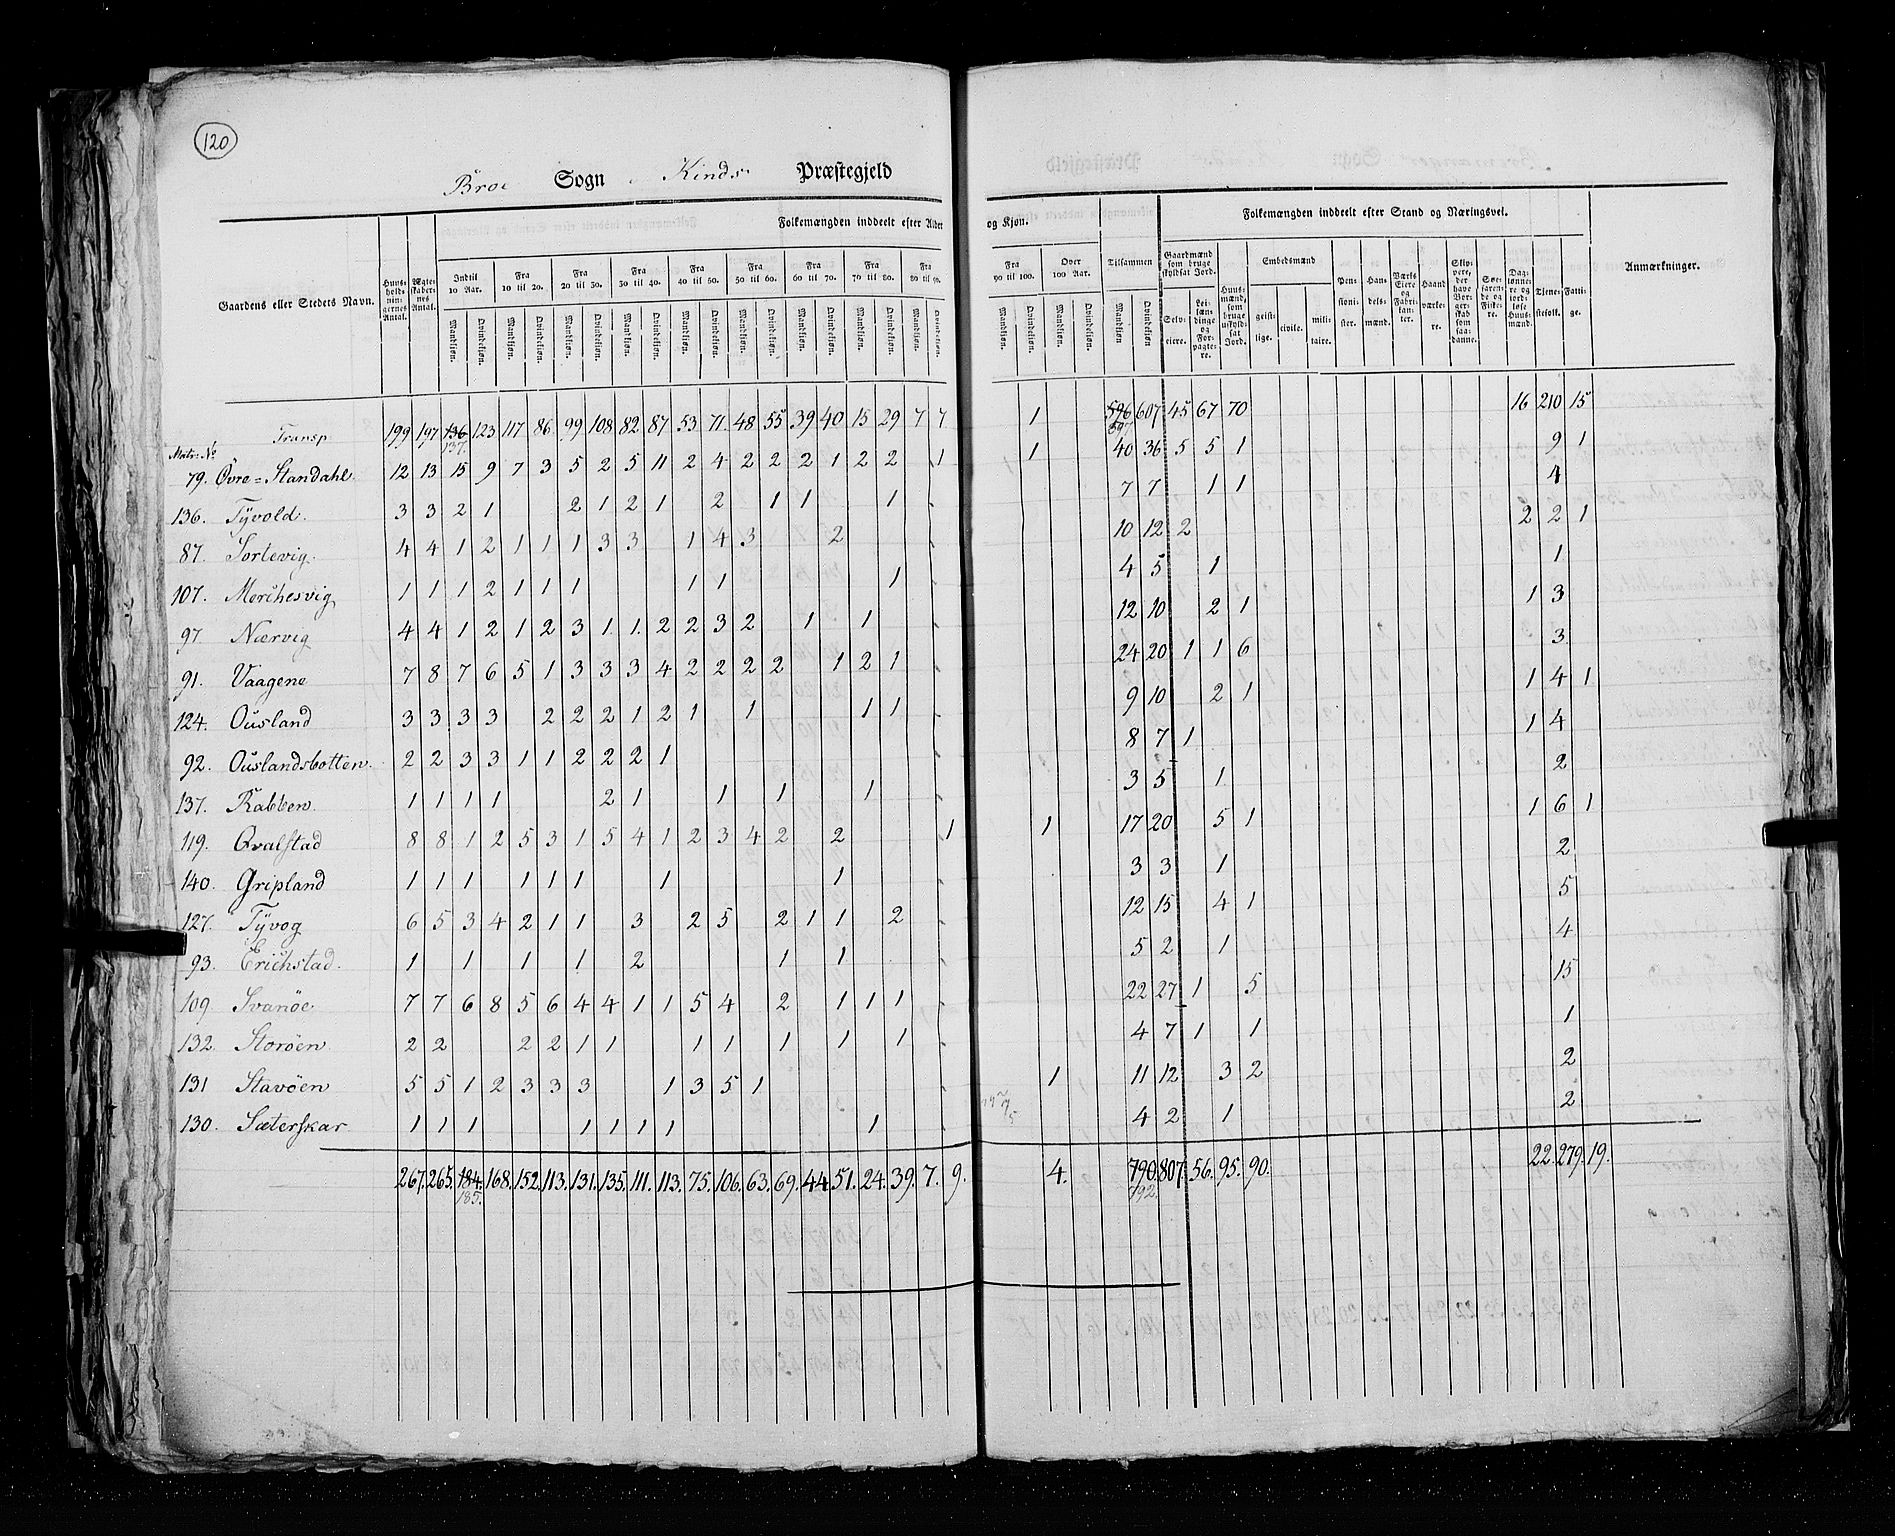 120
Broe Sogn Kinds Præstegjeld Præstegjeld
Gaardens eller Steders Navn. Huusholdningernes Antal. Ægteskabernes Antal. Folkemængden inddeelt efter Alder og Kjøn. Folkemængden inddeelt efter Stand og Næringsvei. Anmærkninger.
Indtil 10 Aar. Fra 10 til 20. Fra 20 til 30. Fra 30 til 40. Fra 40 til 50. Fra 50 til 60. Fra 60 til 70. Fra 70 til 80. Fra 80 til 90. Fra 90 til 100. Over 100 Aar. Tilsammen
Mandkjøn. Qvindekjøn. Mandkjøn. Qvindekjøn. Mandkjøn. Qvindekjøn. Mandkjøn. Qvindekjøn. Mandkjøn. Qvindekjøn. Mandkjøn. Qvindekjøn. Mandkjøn. Qvindekjøn. Mandkjøn. Qvindekjøn. Mandkjøn. Qvindekjøn. Mandkjøn. Qvindekjøn. Mandkjøn. Qvindekjøn. Mandkjøn Qvindekjøn
Gaardmænd som bruge skyldsat Jord. Selveiere. Leilændinge og Forpagtere. Huusmænd, som bruge uskyldsat Jord. Embedsmænd geistlige. civile. militaire. Pensionister. Handelsmænd. Værks Eiere og Fabrikanter. Haandværkere. Skippere, der have Borgerskab som saadanne. Søefarende og Fiskere. Daglønnere og jordløse Huusmænd. Tjenestefolk. Fattige.
Transp 199 197 136 123 117 86 99 108 82 87 53 71 48 55 39 40 15 29 7 7 1 596 607 45 67 70 16 210 15
Matr: No 137. 597
79. Øvre=Standahl. 12 13 15 9 7 3 5 2 5 11 2 4 2 2 2 1 2 2 1 1 40 36 5 5 1 9 1
136. Tÿvold. 3 3 2 1 2 1 2 1 2 1 1 1 7 7 1 1 4
87. Sortevig. 4 4 1 2 1 1 1 3 3 1 4 3 2 10 12 2 2 2 1
107. Merchesvig 1 1 1 2 1 1 1 1 1 1 4 5 1 1
97. Nærvig 4 4 1 2 1 2 3 1. 1. 2 2 3 2 1 1 12 10 2 1 1 3
91. Vaagene 7 8 7 6 5 1 3 3 3 4 2 2 2 2 1 2 1 24 20 1 1 6 3
124. Ousland 3 3 3 3 2 2 2 1 2 1 1 1 1 9 10 2 1 1 4 1
92. Ouslandsbotten. 2 2 3 3 1 1 2 2 2 1 8 7 1 1 4
137. Rabben. 1 1 1 1 2 1 1 1 1 3 5 1 2
119. Qvalstad 8 8 1 2 5 3 1 5 4 1 2 3 4 2 2 1 1 17 20 5 1 1 6 1
140. Gripland 1 1 1 1 1 1 1 1 3 3 1 2
127. Tÿvog 6 5 3 4 2 1 1 3 2 5 2 1 1 2 12 15 4 1 5
93. Erichstad. 1 1 1 1 2 1 1 5 2 1 4
109. Svanöe 7 7 6 8 5 6 4 4 1 1 5 4 2 1 1 1 22 27 1 5 15
132. Storöen 2 2 2 2 1 1 1 1 1 1 1 4 7 1 1 1
131 Stavöen 5 5 1 2 3 3 3 1 3 5 1 1 11 12 3 2 2
130. Sæterskar 1 1 1 1 1 1 1 1 4 2 1 2
267. 265. 184. 168. 152. 113. 131. 135. 111. 113. 75. 106. 63. 69. 44 51. 24. 39. 7. 9. 4. 790. 807. 56. 95. 90. 22. 279. 19.
185. 792.